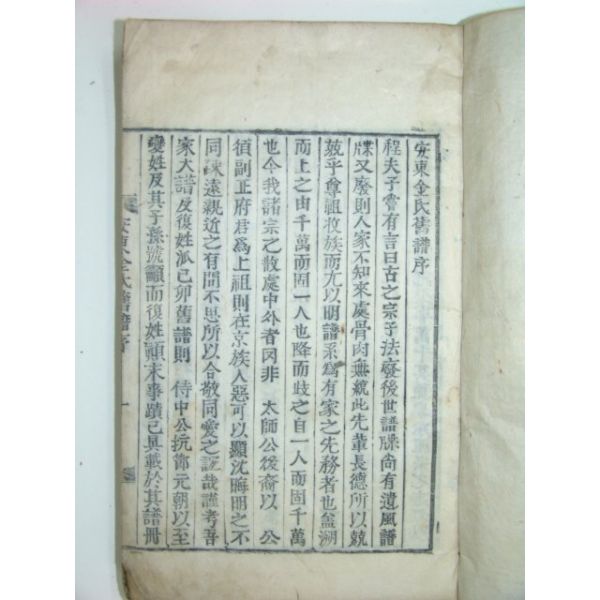 安東金氏舊譜序
程夫子嘗有言曰古之宗子法廢後世譜牒尙有遺風譜
牒又廢則人家不知來處骨肉無統此先輩長德所以兢
兢乎尊祖收族而尤以明譜系爲有家之先務者也盖溯
而上之由千萬而固一人也降而歧之自一人而固千萬
也今我諸宗之散處中外者罔非 太師公後裔以 公
須副正府君爲上祖則在京族人惡可以顯沈晦明之不
同疎遠親近之有間不思所以合敬同愛之哉謹考吾
家大譜及復姓派己卯舊譜則 侍中公抗節元朝以至
變姓及其子孫號籲而復姓顚末事蹟已具載於其譜冊
安東金氏舊譜序 一